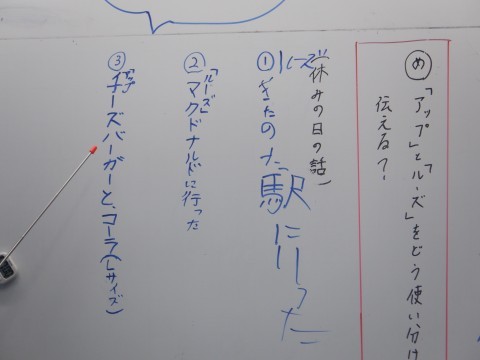 め 「アップ」と「ルーズ」をどう使い分け
伝える？
（休みの日の話）
ルーズ
① きたのえき駅に行った
「ルーズ」
② マクドナルドに行った
アップ
③ チーズバーガーと、コーラ（Lサイズ）